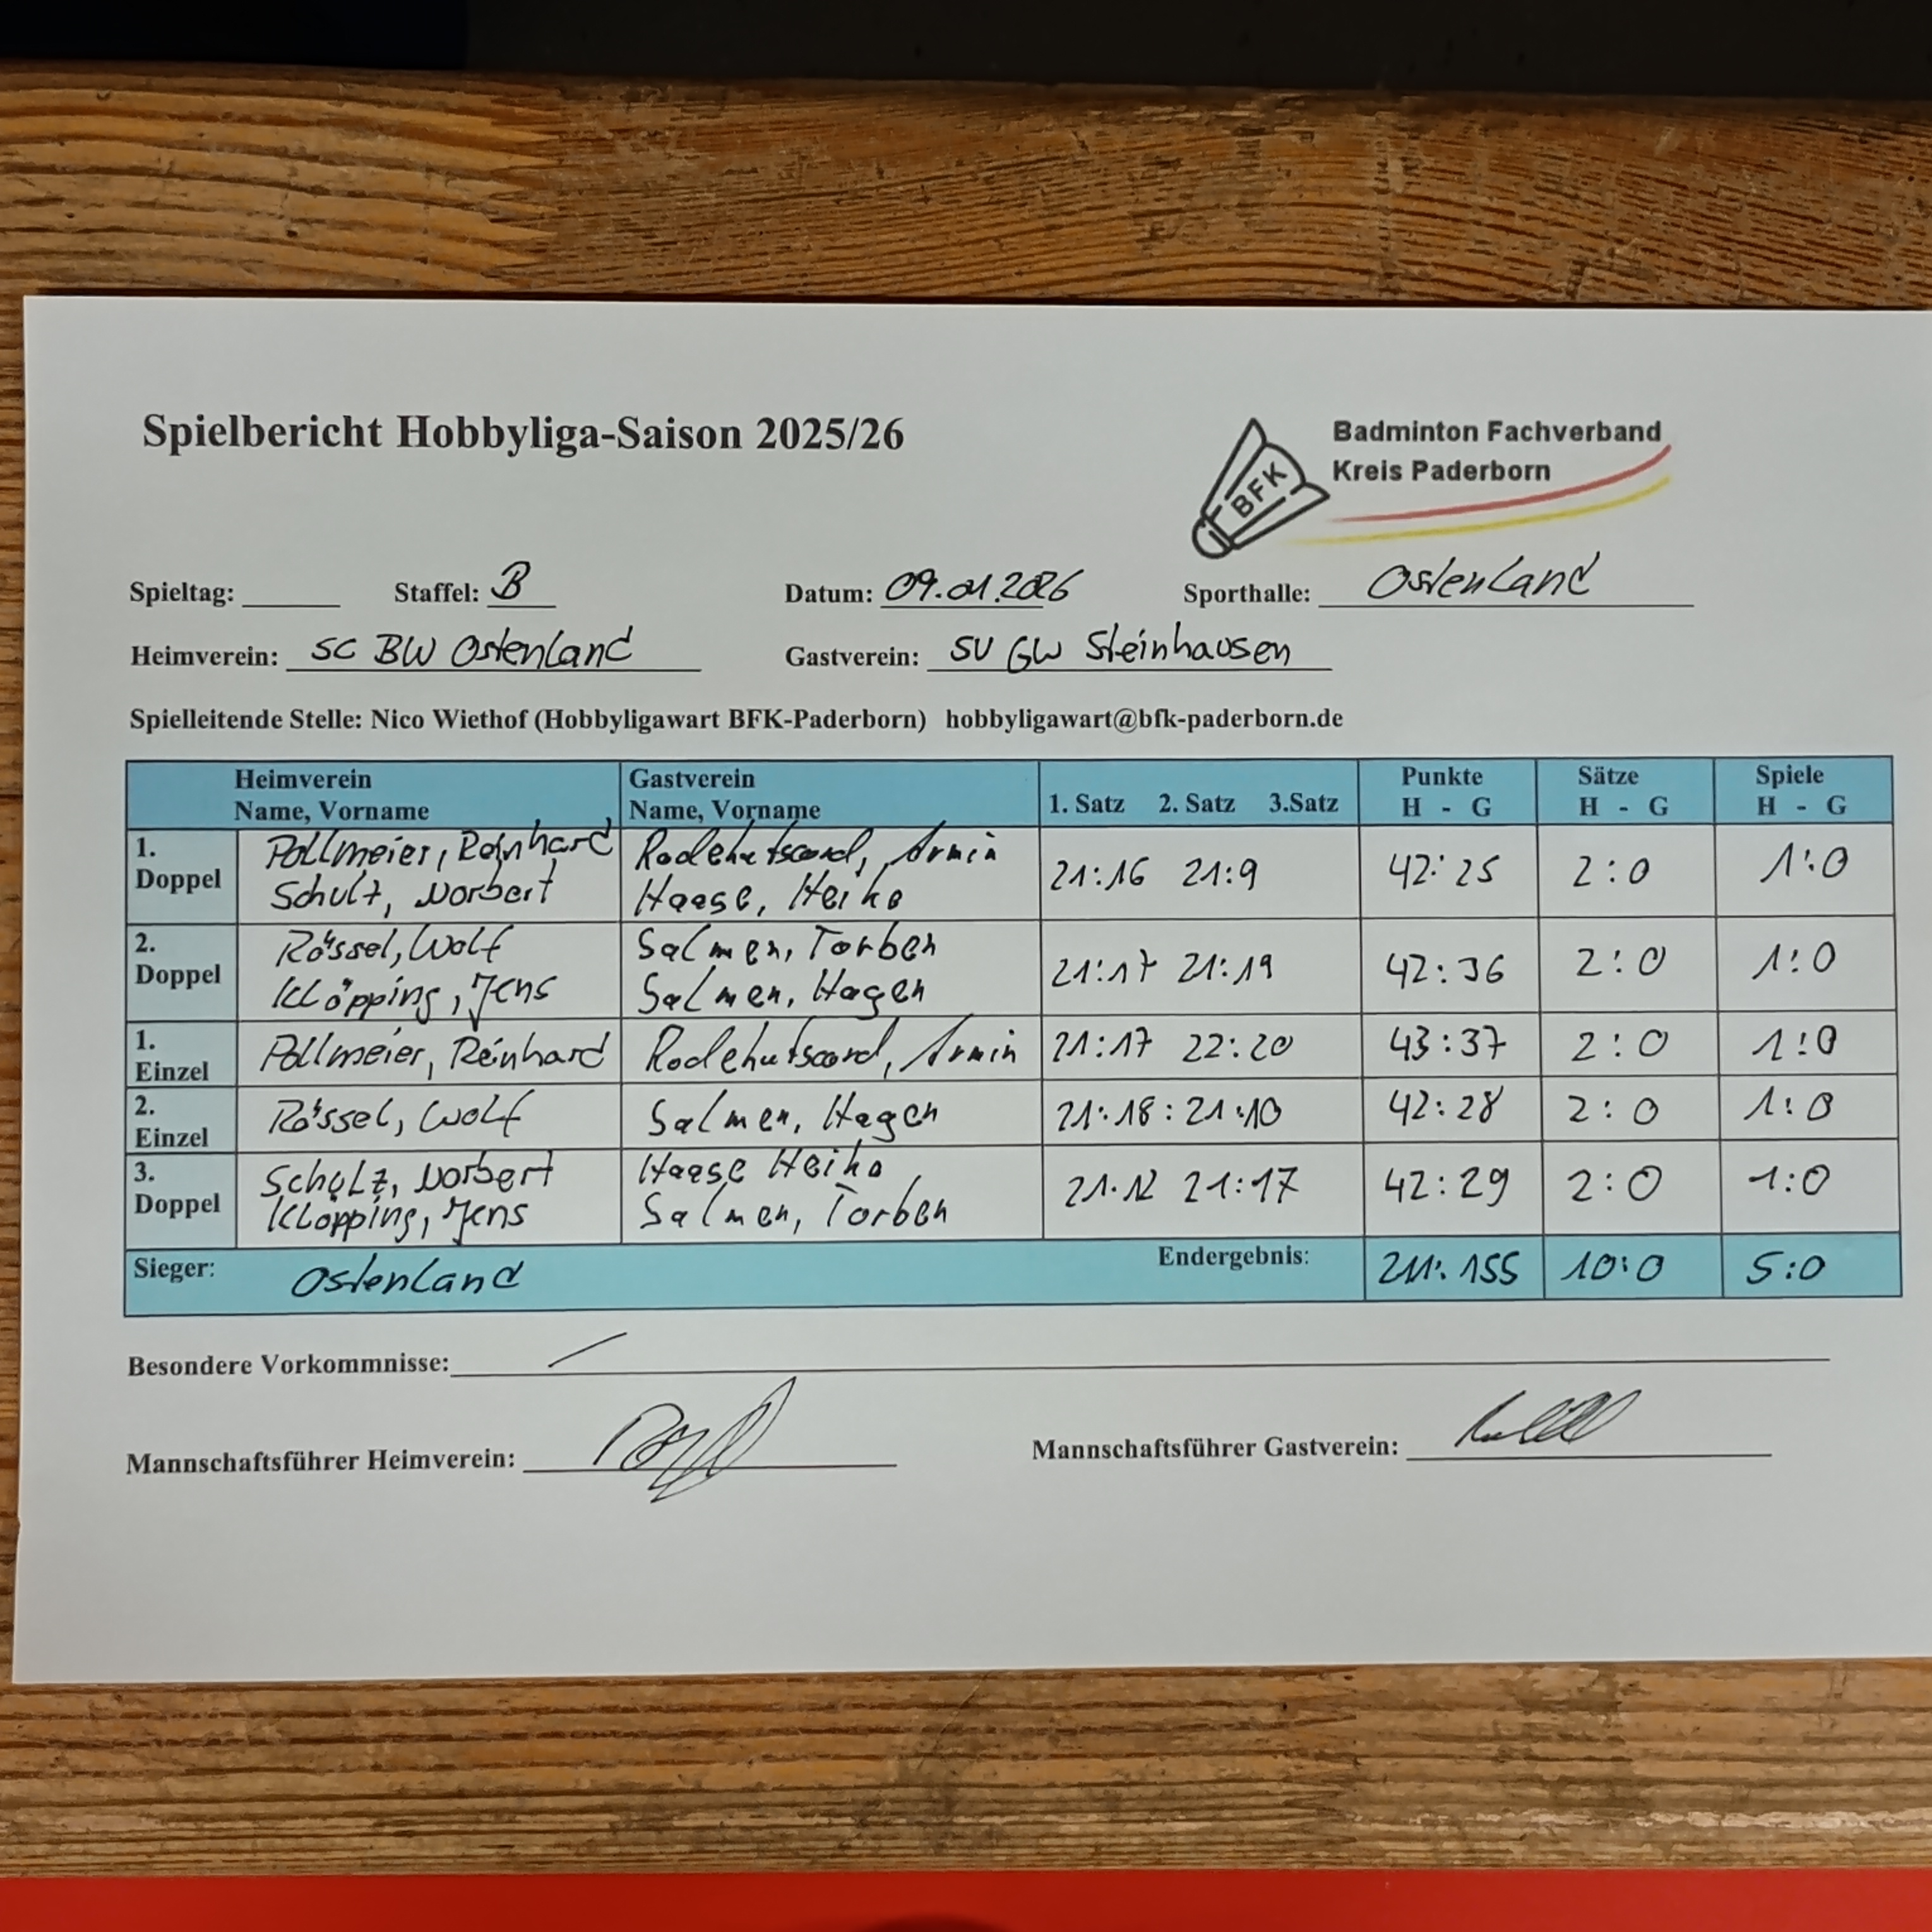 Spielbericht Hobbyliga-Saison 2025/26
BFK
Badminton Fachverband
Kreis Paderborn
Spieltag: Staffel: B Datum: 09.01.2026 Sporthalle: Ostenland
Heimverein: SC BW Ostenland Gastverein: SV GW Steinhausen
Spielleitende Stelle: Nico Wiethof (Hobbyligawart BFK-Paderborn) hobbyligawart@bfk-paderborn.de
Heimverein Gastverein Punkte Sätze Spiele
Name, Vorname Name, Vorname 1. Satz 2. Satz 3.Satz H - G H - G H - G
1. Doppel Pollmeier, Reinhard Rodehutscord, Armin 21:16 21:9 42:25 2:0 1:0
Schulz, Norbert Haase, Heiko
2. Doppel Rössel, Wolf Salmen, Torben 21:17 21:19 42:36 2:0 1:0
Klöpping, Jens Salmen, Hagen
1. Einzel Pollmeier, Reinhard Rodehutscord, Armin 21:17 22:20 43:37 2:0 1:0
2. Einzel Rössel, Wolf Salmen, Hagen 21:18 : 21:10 42:28 2:0 1:0
3. Doppel Schulz, Norbert Haase Heiko 21:12 21:17 42:29 2:0 1:0
Klöpping, Jens Salmen, Torben
Sieger: Ostenland Endergebnis: 211:155 10:0 5:0
Besondere Vorkommnisse:
Mannschaftsführer Heimverein: Mannschaftsführer Gastverein: